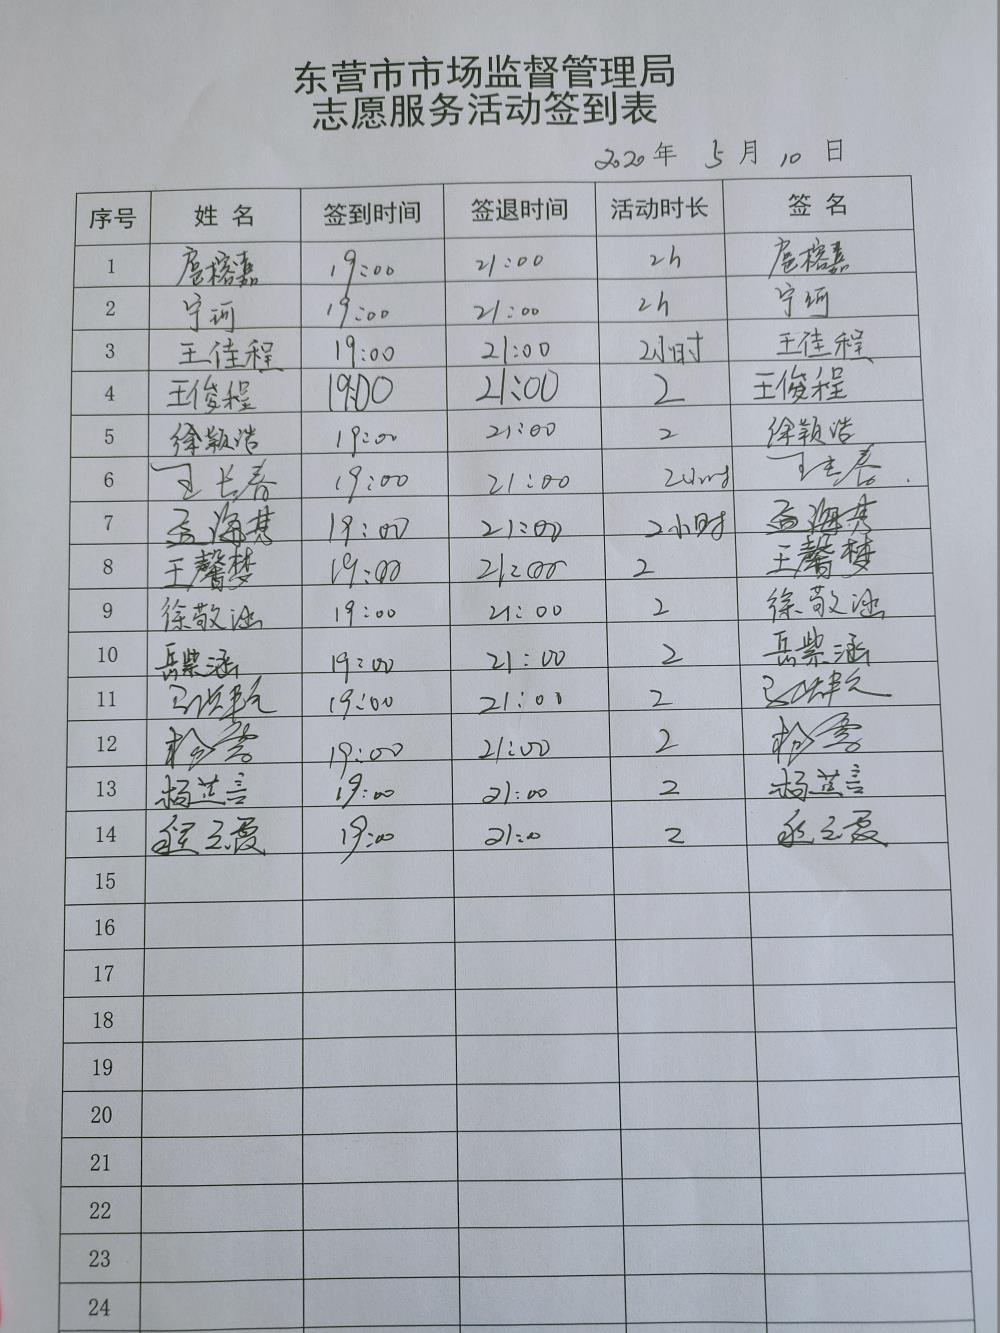 东营市市场监督管理局
志愿服务活动签到表
2020年 5月 10日
序号 姓名 签到时间 签退时间 活动时长 签名
1 扈榕嘉 19:00 21:00 2h 扈榕嘉
2 宁珂 19:00 21:00 2h 宁珂
3 王佳程 19:00 21:00 2小时 王佳程
4 王俊程 19:00 21:00 2 王俊程
5 徐颖浩 19:00 21:00 2 徐颖浩
6 王长春 19:00 21:00 2小时 王长春
7 孟海其 19:00 21:00 2小时 孟海其
8 王馨梦 19:00 21:00 2 王馨梦
9 徐敬涵 19:00 21:00 2 徐敬涵
10 岳紫涵 19:00 21:00 2 岳紫涵
11 19:00 21:00 2
12 19:00 21:00 2
13 杨芷言 19:00 21:00 2 杨芷言
14 19:00 21:0 2
15
16
17
18
19
20
21
22
23
24